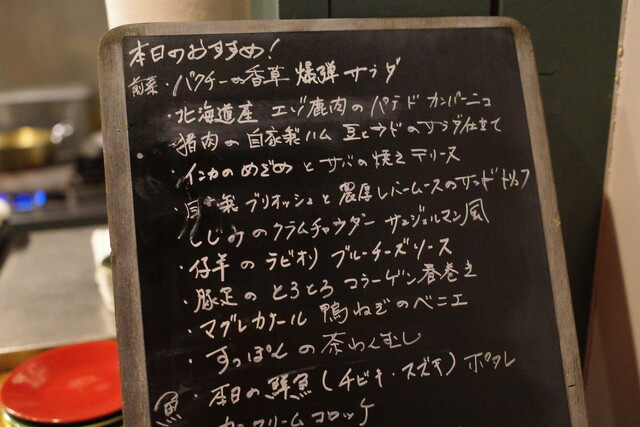 本日のおすすめ!
前菜・パクチーの香草 爆弾 サラダ
・北海道産 エゾ鹿肉の パテド カンパーニュ
・猪肉の 自家製ハム 豆と のサラダ仕立て
・インカのめざめ と サバの 焼き テリーヌ
自 製 ブリオッシュと 濃厚レバームースのサンド トリュフ
・しじみの クラムチャウダー サンジェルマン風
・仔羊の ラビオリ ブルーチーズソース
・豚足の とろとろ コラーゲン春巻き
・マグレカナール 鴨ねぎのベニエ
・すっぽんの 茶わんむし
魚 ・本日の鮮魚(チビキ・スズキ) ポワレ
クリーム コロッケ